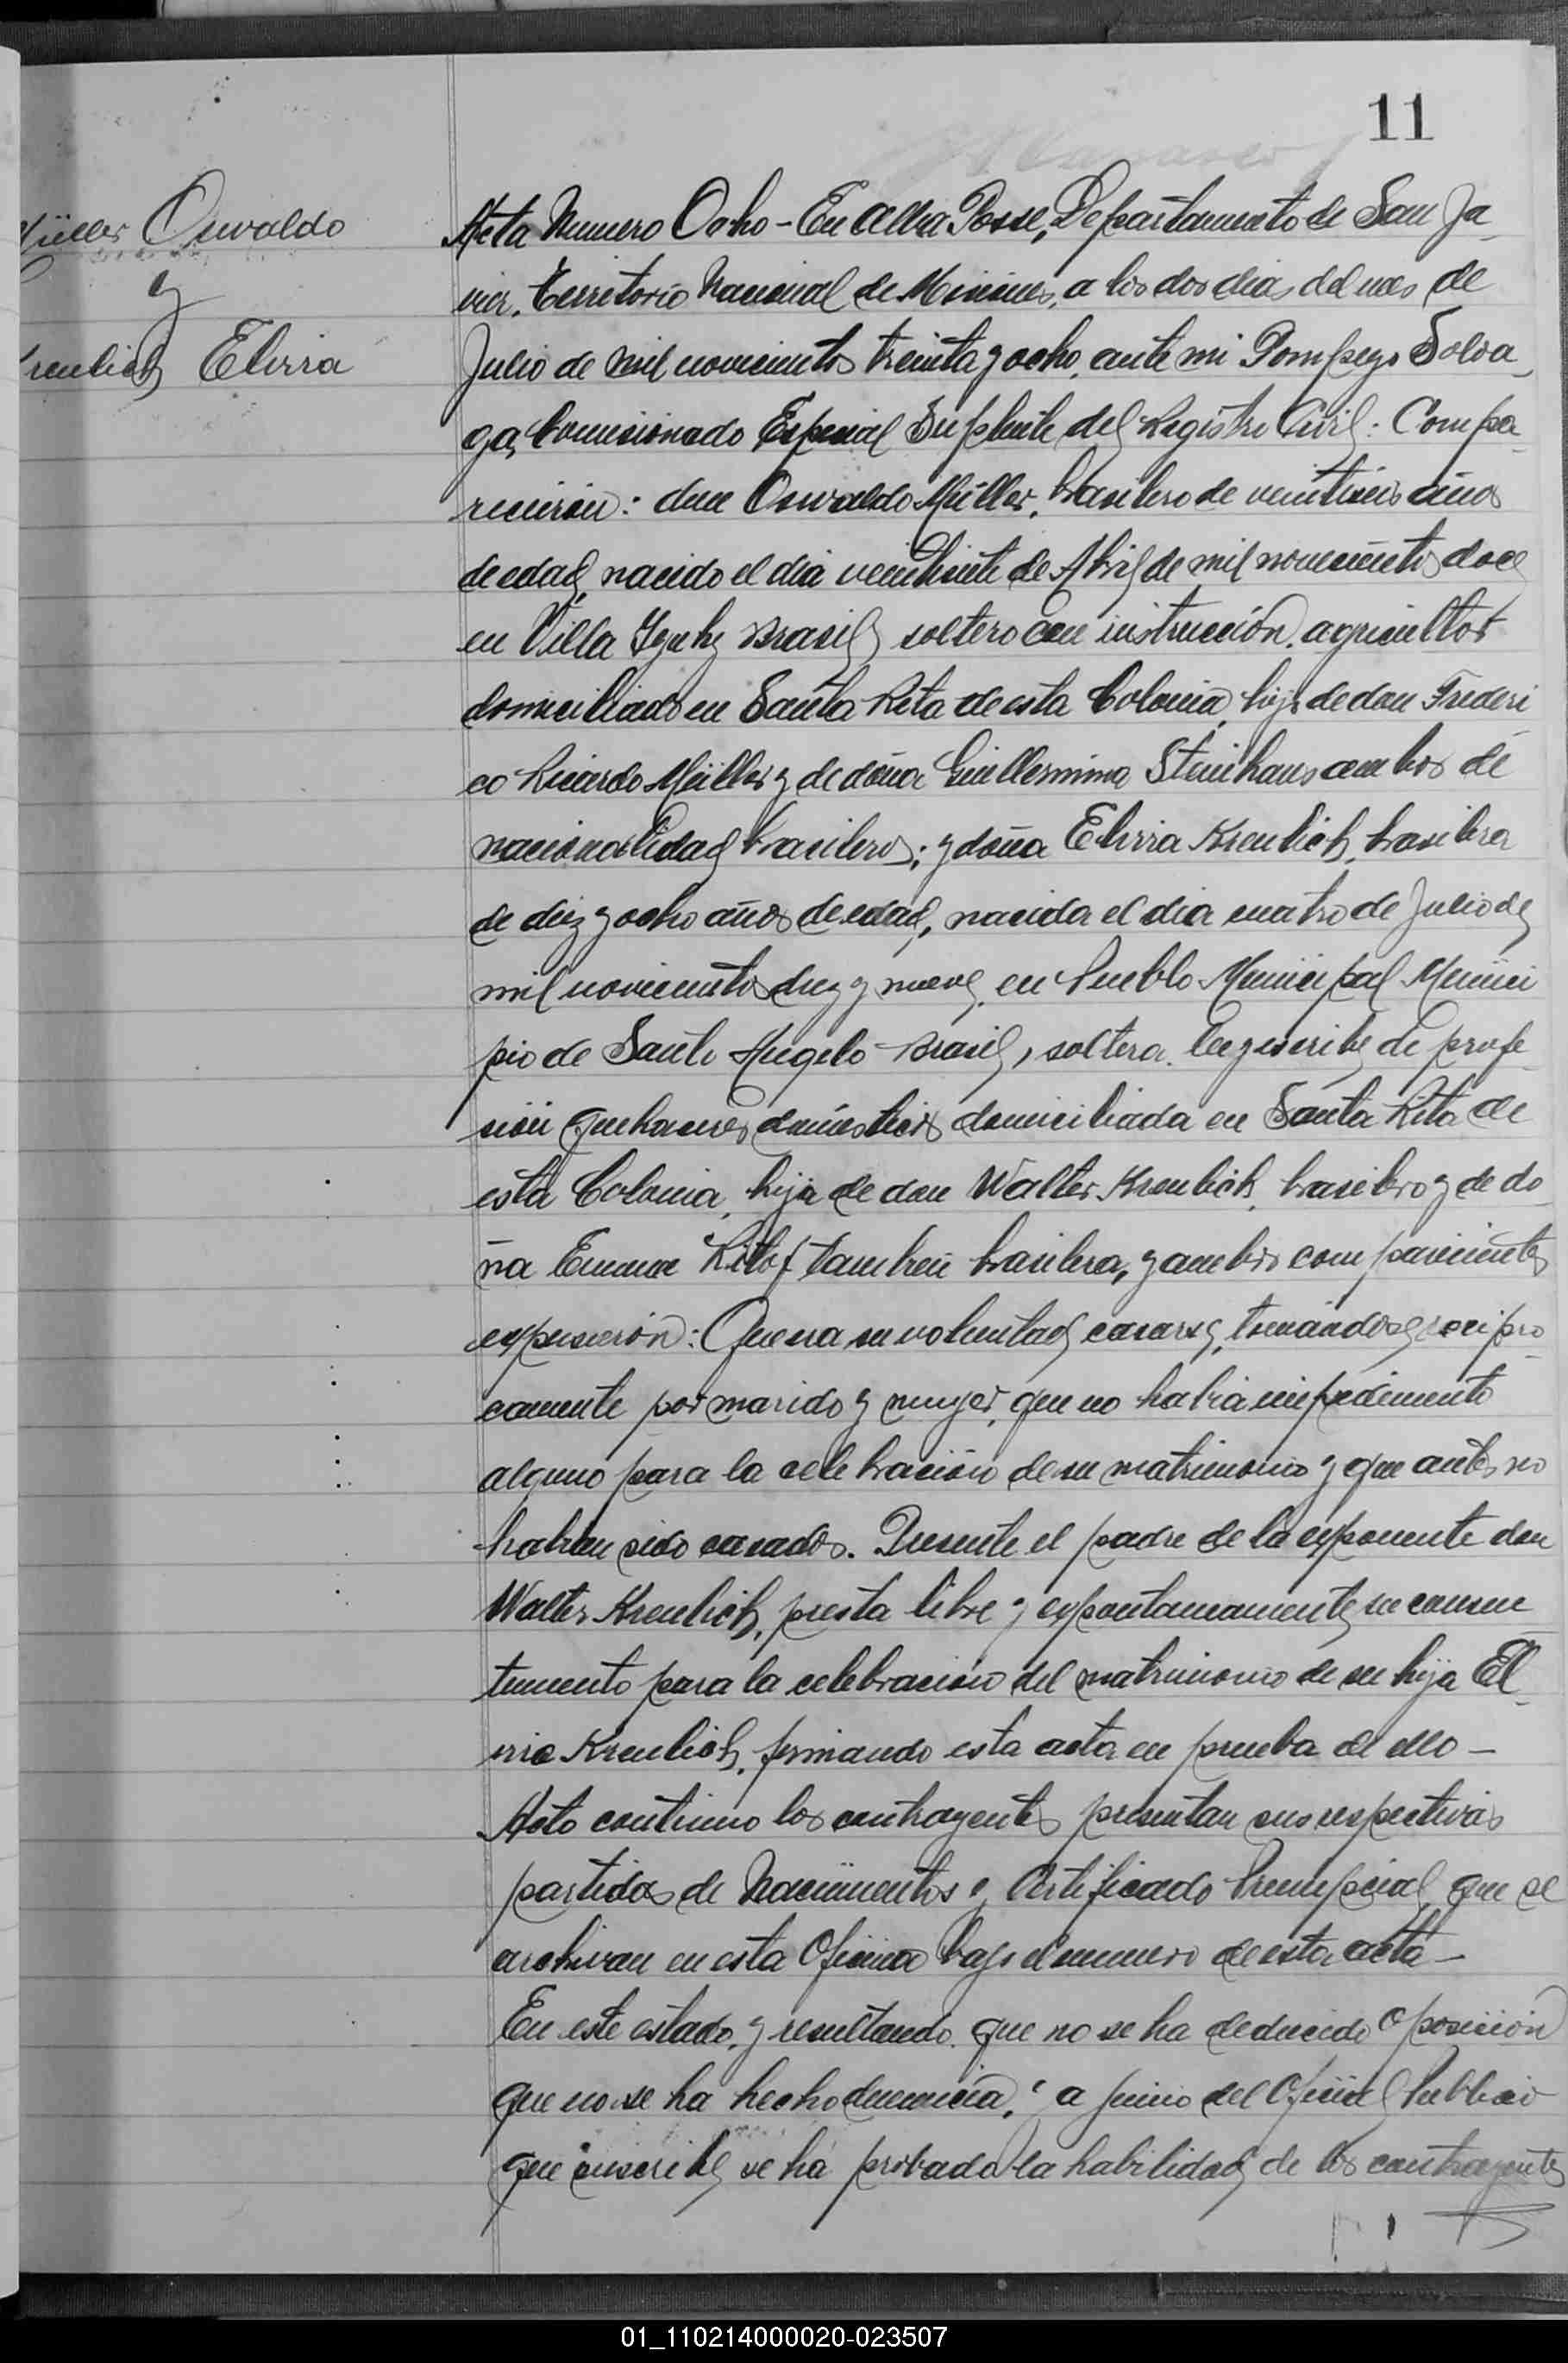 11
Müller Oswaldo
y
Krenlich Elvira
Acta Numero Ocho - En Alba Posse, Departamento de San Ja-
vier, Territorio Nacional de Misiones, a los dos dias del mes de
Julio de mil novecientos treinta y ocho, ante mi Pompeyo Solva-
ga, Comisionado Especial Suplente del Registro Civil: Compa-
recieron: don Oswaldo Müller, brasilero de veintiseis años
de edad, nacido el dia veintisiete de Abril de mil novecientos doce
en Villa Yjuhy Brasil, soltero con instrucción, agricultor
domiciliado en Santa Rita de esta Colonia, hijo de don Frederi
co Ricardo Müller y de doña Guillermina Steinhaus ambos de
nacionalidad brasileros; y doña Elvira Krenlich, brasilera
de diez y ocho años de edad, nacida el dia cuatro de Julio de
mil novecientos diez y nueve, en Pueblo Municipal Munici
pio de Santo Angelo - Brasil, soltera, lee y escribe, de profe-
sión quehaceres domésticos domiciliada en Santa Rita de
esta Colonia, hija de don Walter Krenlich, brasilero y de do-
ña Emma tambien brasilera, y ambos comparecientes
expusieron: Que era su voluntad casarse, tomándose recipro-
camente por marido y mujer, que no habia impedimento
alguno para la celebración de su matrimonio y que antes no
habian sido casados. Presente el padre de la exponente don
Walter Krenlich, presta libre y expontaneamente su consen
timiento para la celebración del matrimonio de su hija El-
vira Krenlich, firmando esta acta en prueba de ello -
Acto continuo los contrayentes presentan sus respectivas
partidas de Nacimientos y Certificado Prenupcial, que se
archivan en esta Oficina bajo el numero de esta acta -
En este estado, y resultando que no se ha deducido oposición
que no se ha hecho denuncia, y a juicio del Oficial Publico
que suscribe, se ha probado la habilidad de los contrayentes
01_110214000020-023507